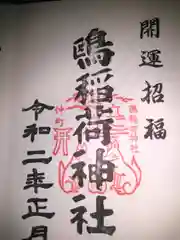 開運招福
鴎稲荷神社
令和二年正月